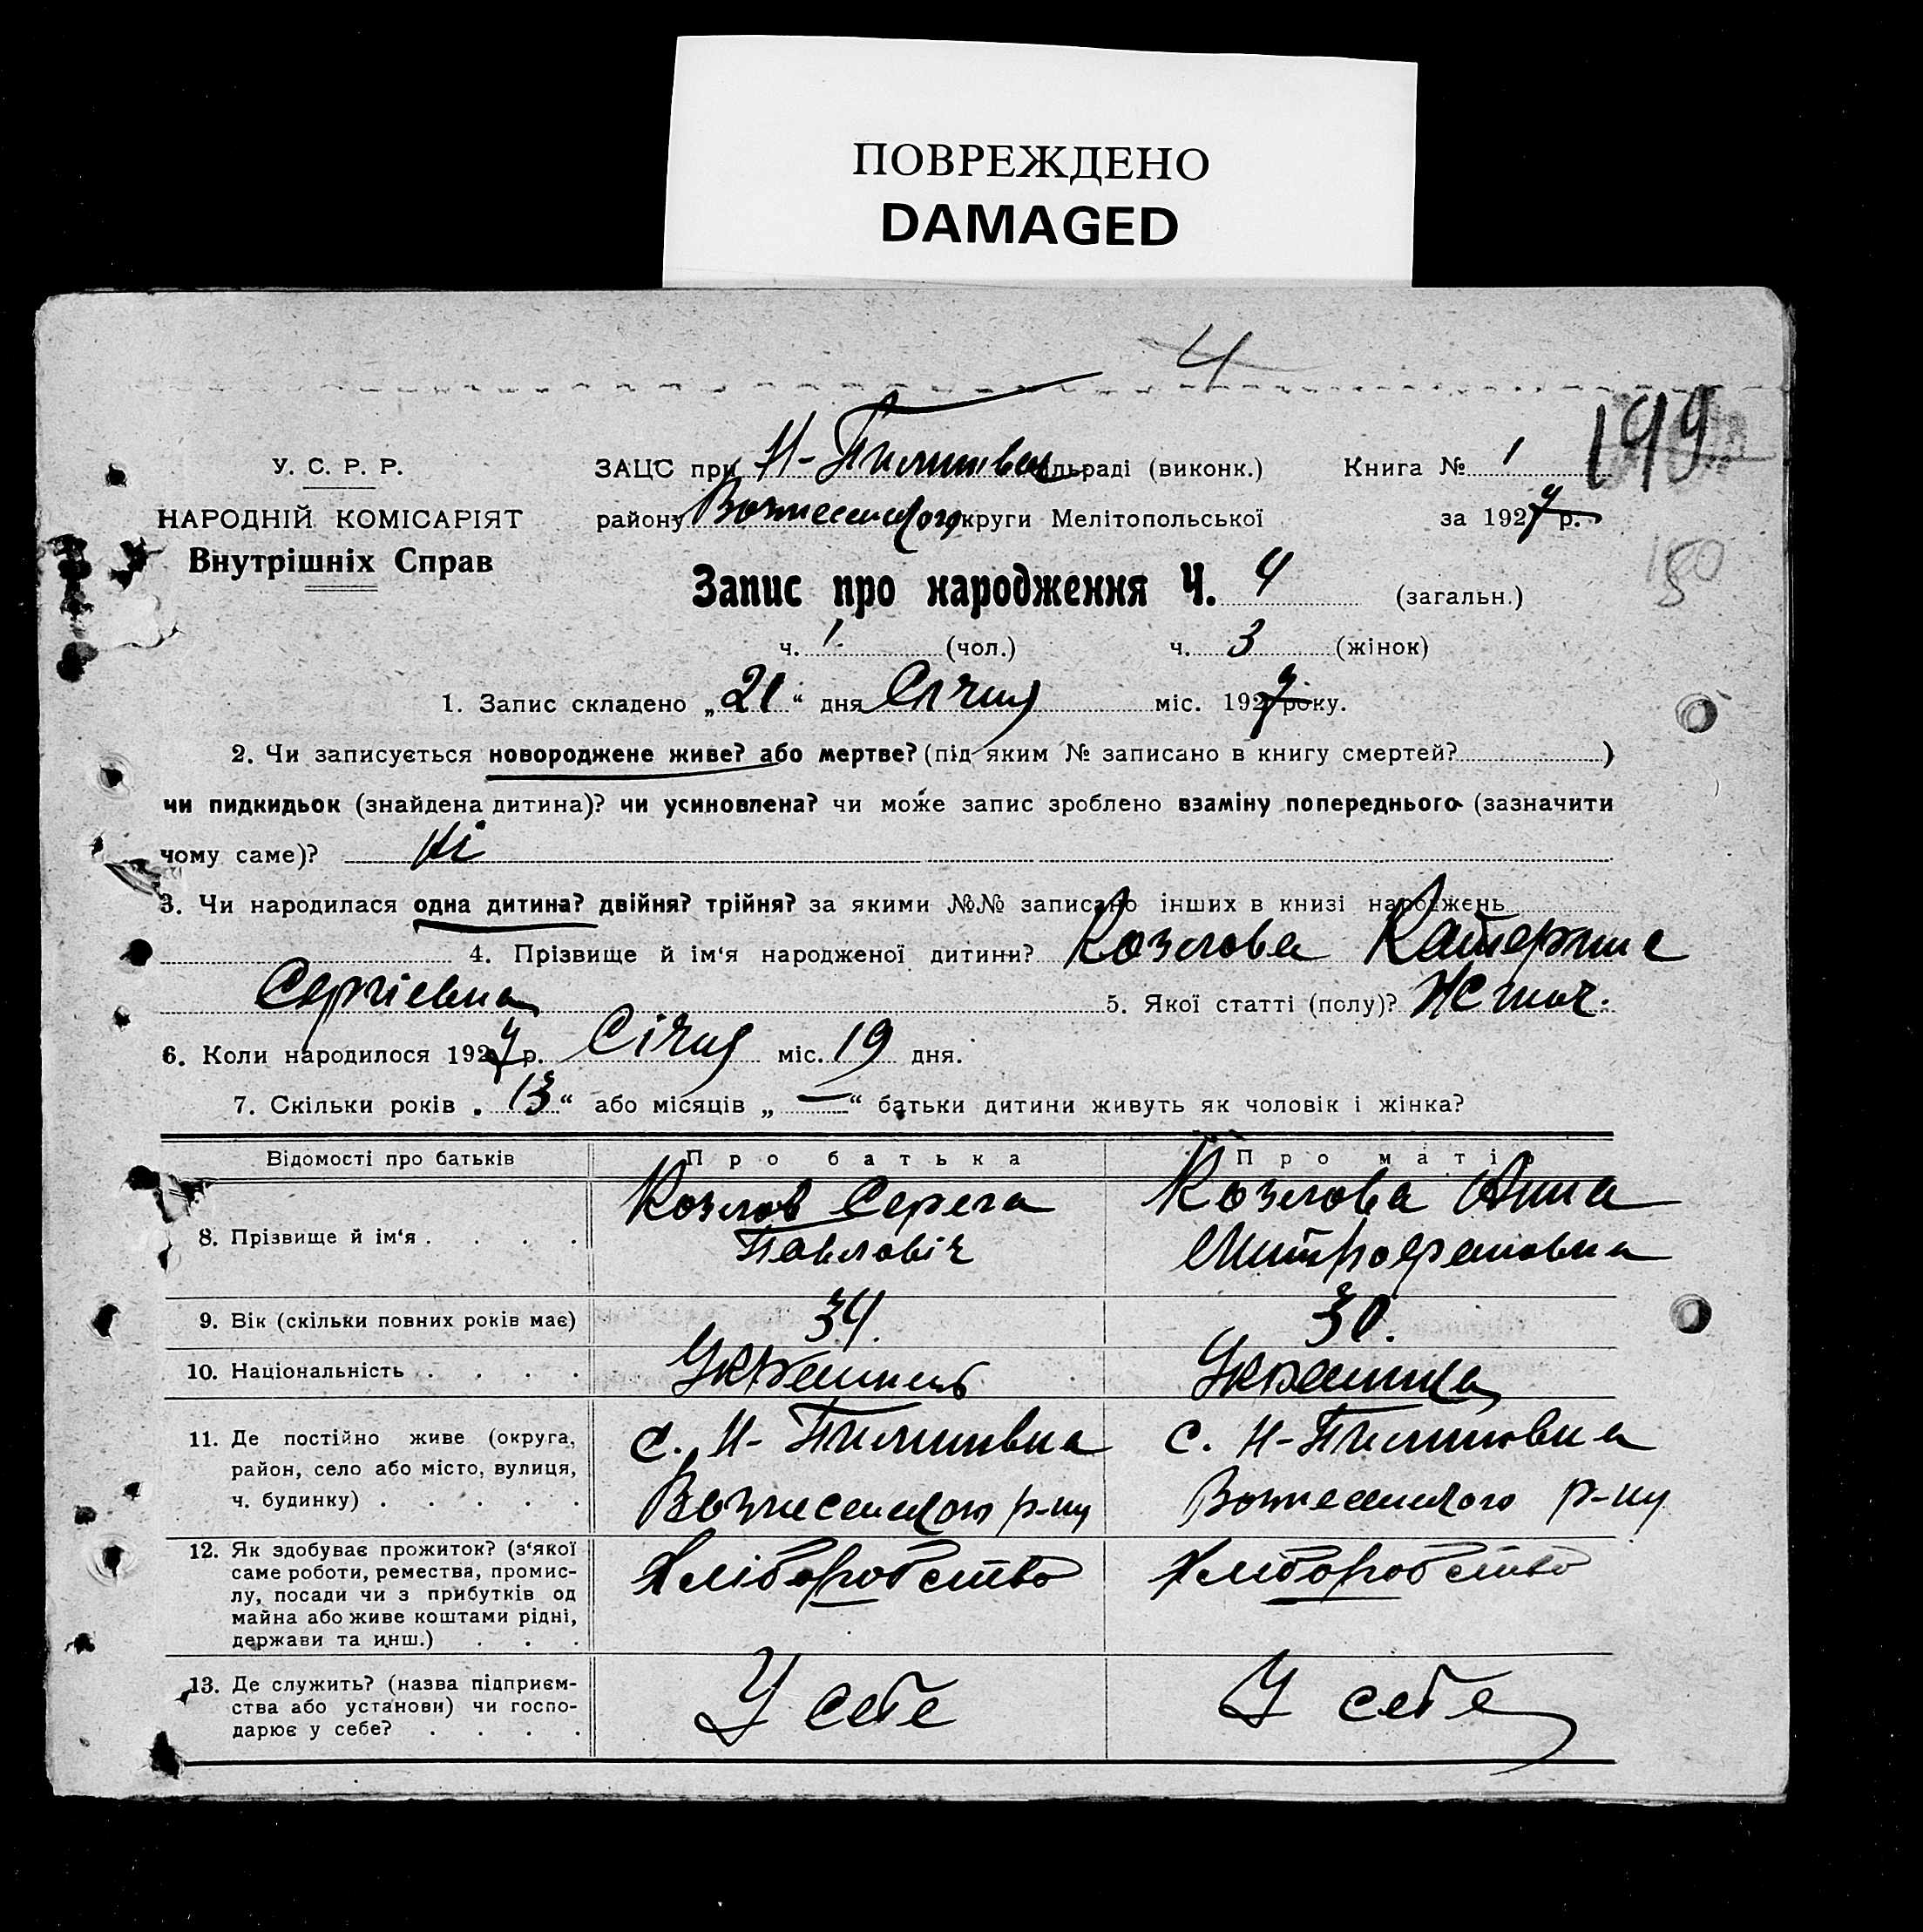 ПОВРЕЖДЕНО
DAMAGED
4
199
У. С. Р. Р.
НАРОДНІЙ КОМІСАРІЯТ
Внутрішніх Справ
ЗАЦС при Н-Пилипівск сільраді (виконк.) Книга № 1
району Вознесенского округи Мелітопольської за 1927 р.
150
Запис про народження Ч. 4 (загальн.)
ч. 1 (чол.) ч. 3 (жінок)
1. Запис складено „21“ дня Січня міс. 1927 року.
2. Чи записується новороджене живе? або мертве? (під яким № записано в книгу смертей? )
чи пидкидьок (знайдена дитина)? чи усиновлена? чи може запис зроблено взаміну попереднього (зазначити
чому саме)? Ні
3. Чи народилася одна дитина? двійня? трійня? за якими №№ записано інших в книзі народжень
4. Прізвище й ім‘я народженої дитини? Козлова Катерина
Сергіевна 5. Якої статті (полу)? Жіноч.
6. Коли народилося 1927 р. Січня міс. 19 дня.
7. Скільки років „13“ або місяців „—“ батьки дитини живуть як чоловік і жінка?
Відомості про батьків Про батька Про матір
8. Прізвище й ім‘я . . . . Козлов Серега Павловіч Козлова Анна Митрофановна
9. Вік (скільки повних років має) 34. 30.
10. Національність . . . . Украинець Украинка
11. Де постійно живе (округа, район, село або місто, вулиця, ч. будинку) . . . . . с. Н-Пилипівка Вознесенского р-ну с. Н-Пилипівка Вознесенского р-ну
12. Як здобуває прожиток? (з‘якої саме роботи, ремества, промислу, посади чи з прибутків од майна або живе коштами рідні, держави та инш.) . . . Хліборобство Хліборобство
13. Де служить? (назва підприємства або установи) чи господарює у себе? . . . . У себе У себе